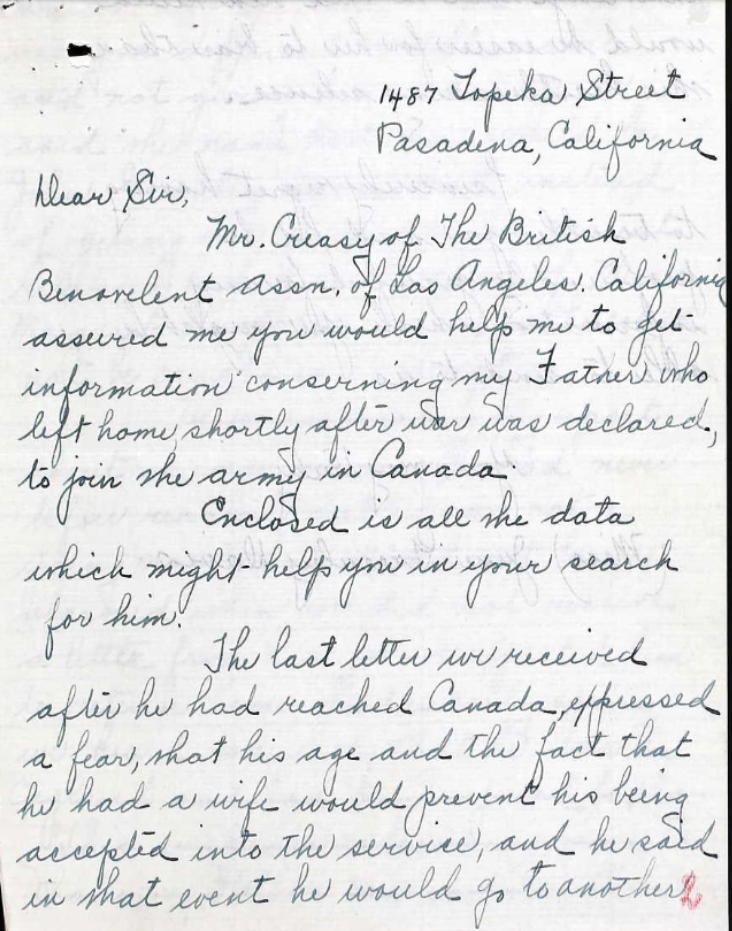 1487 Topeka Street
Pasadena, California
Dear Sir,
Mr. Creasy of The British
Benovelent Assn. of Los Angeles. California
assured me you would help me to get
information conserning my Father who
left home shortly after war was declared,
to join the army in Canada
Enclosed is all the data
which might help you in your search
for him.
The last letter we received
after he had reached Canada, expressed
a fear, that his age and the fact that
he had a wife would prevent his being
accepted into the service, and he said
in that event he would go to another
2